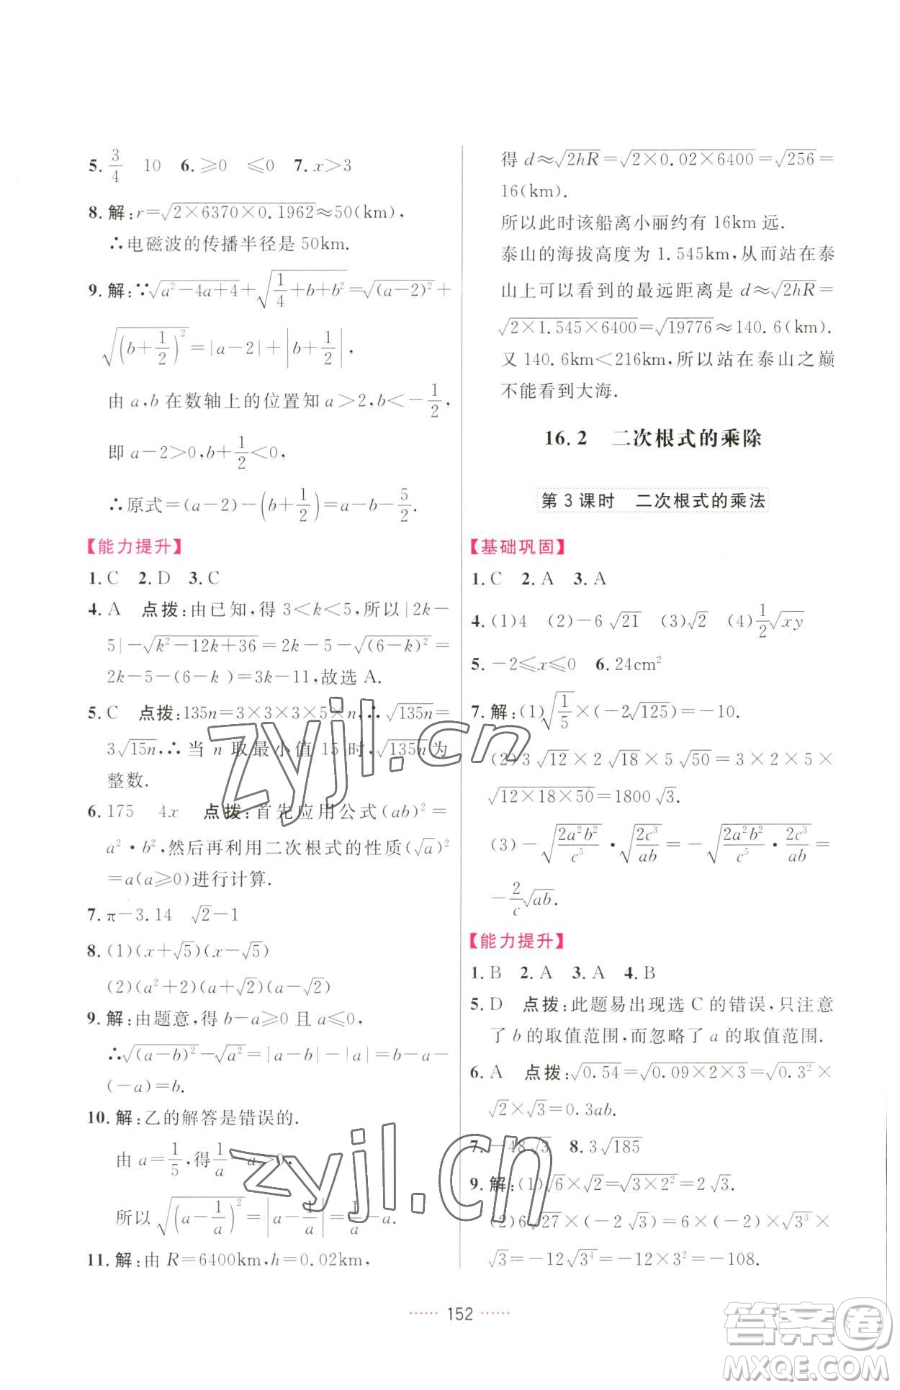 5. 3/4　10　6. ≥0　≤0　7. x>3
8. 解:r=√(2×6370×0.1962)≈50(km),
∴电磁波的传播半径是50km.
9. 解:∵√(a²-4a+4)+√(1/4+b+b²)=√((a-2)²)+
√((b+1/2)²)=|a-2|+|b+1/2|,
由a,b在数轴上的位置知a>2,b<-1/2,
即a-2>0,b+1/2<0,
∴原式=(a-2)-(b+1/2)=a-b-5/2.
【能力提升】
1. C　2. D　3. C
4. A　点拨:由已知,得3<k<5,所以|2k-
5|-√(k²-12k+36)=2k-5-√((6-k)²)=
2k-5-(6-k)=3k-11,故选A.
5. C　点拨:135n=3×3×3×5×n,∴√(135n)=
3√(15n),∴当n取最小值15时,√(135n)为
整数.
6. 175　4x　点拨:首先应用公式(ab)²=
a²·b²,然后再利用二次根式的性质(√a)²
=a(a≥0)进行计算.
7. π-3.14　√2-1
8. (1)(x+√5)(x-√5)
(2)(a²+2)(a+√2)(a-√2)
9. 解:由题意,得b-a≥0且a≤0,
∴√((a-b)²)-√(a²)=|a-b|-|a|=b-a-
(-a)=b.
10. 解:乙的解答是错误的.
由a=1/5,得1/a-a>0,
所以√((a-1/a)²)=|a-1/a|=1/a-a.
11. 解:由R=6400km,h=0.02km,
得d≈√(2hR)=√(2×0.02×6400)=√256=
16(km).
所以此时该船离小丽约有16km远.
泰山的海拔高度为1.545km,从而站在泰
山上可以看到的最远距离是d≈√(2hR)=
√(2×1.545×6400)=√19776≈140.6(km).
又140.6km<216km,所以站在泰山之巅
不能看到大海.
16.2　二次根式的乘除
第3课时　二次根式的乘法
【基础巩固】
1. C　2. A　3. A
4. (1)4　(2)-6√21　(3)√2　(4)1/2√(xy)
5. -2≤x≤0　6. 24cm²
7. 解:(1)√(1/5)×(-2√125)=-10.
(2)3√12×2√18×√50=3×2×
√(12×18×50)=1800√3.
(3)-√(2a²b²/c⁵)·√(2c³/ab)=-√(2a²b²/c⁵·2c³/ab)=
-2/c√(ab).
【能力提升】
1. B　2. A　3. A　4. B
5. D　点拨:此题易出现选C的错误,只注意
了b的取值范围,而忽略了a的取值范围.
6. A　点拨:√0.54=√(0.09×2×3)=√(0.3²)×
√2×√3=0.3ab.
7. -48√3　8. 3√185
9. 解:(1)√6×√2=√(3×2²)=2√3.
(2)6√27×(-2√3)=6×(-2)×√(3³)×
√3=-12√(3⁴)=-12×3²=-108.
152
zyjl.cn
zyjl.cn
答案圈
MXQE.COM